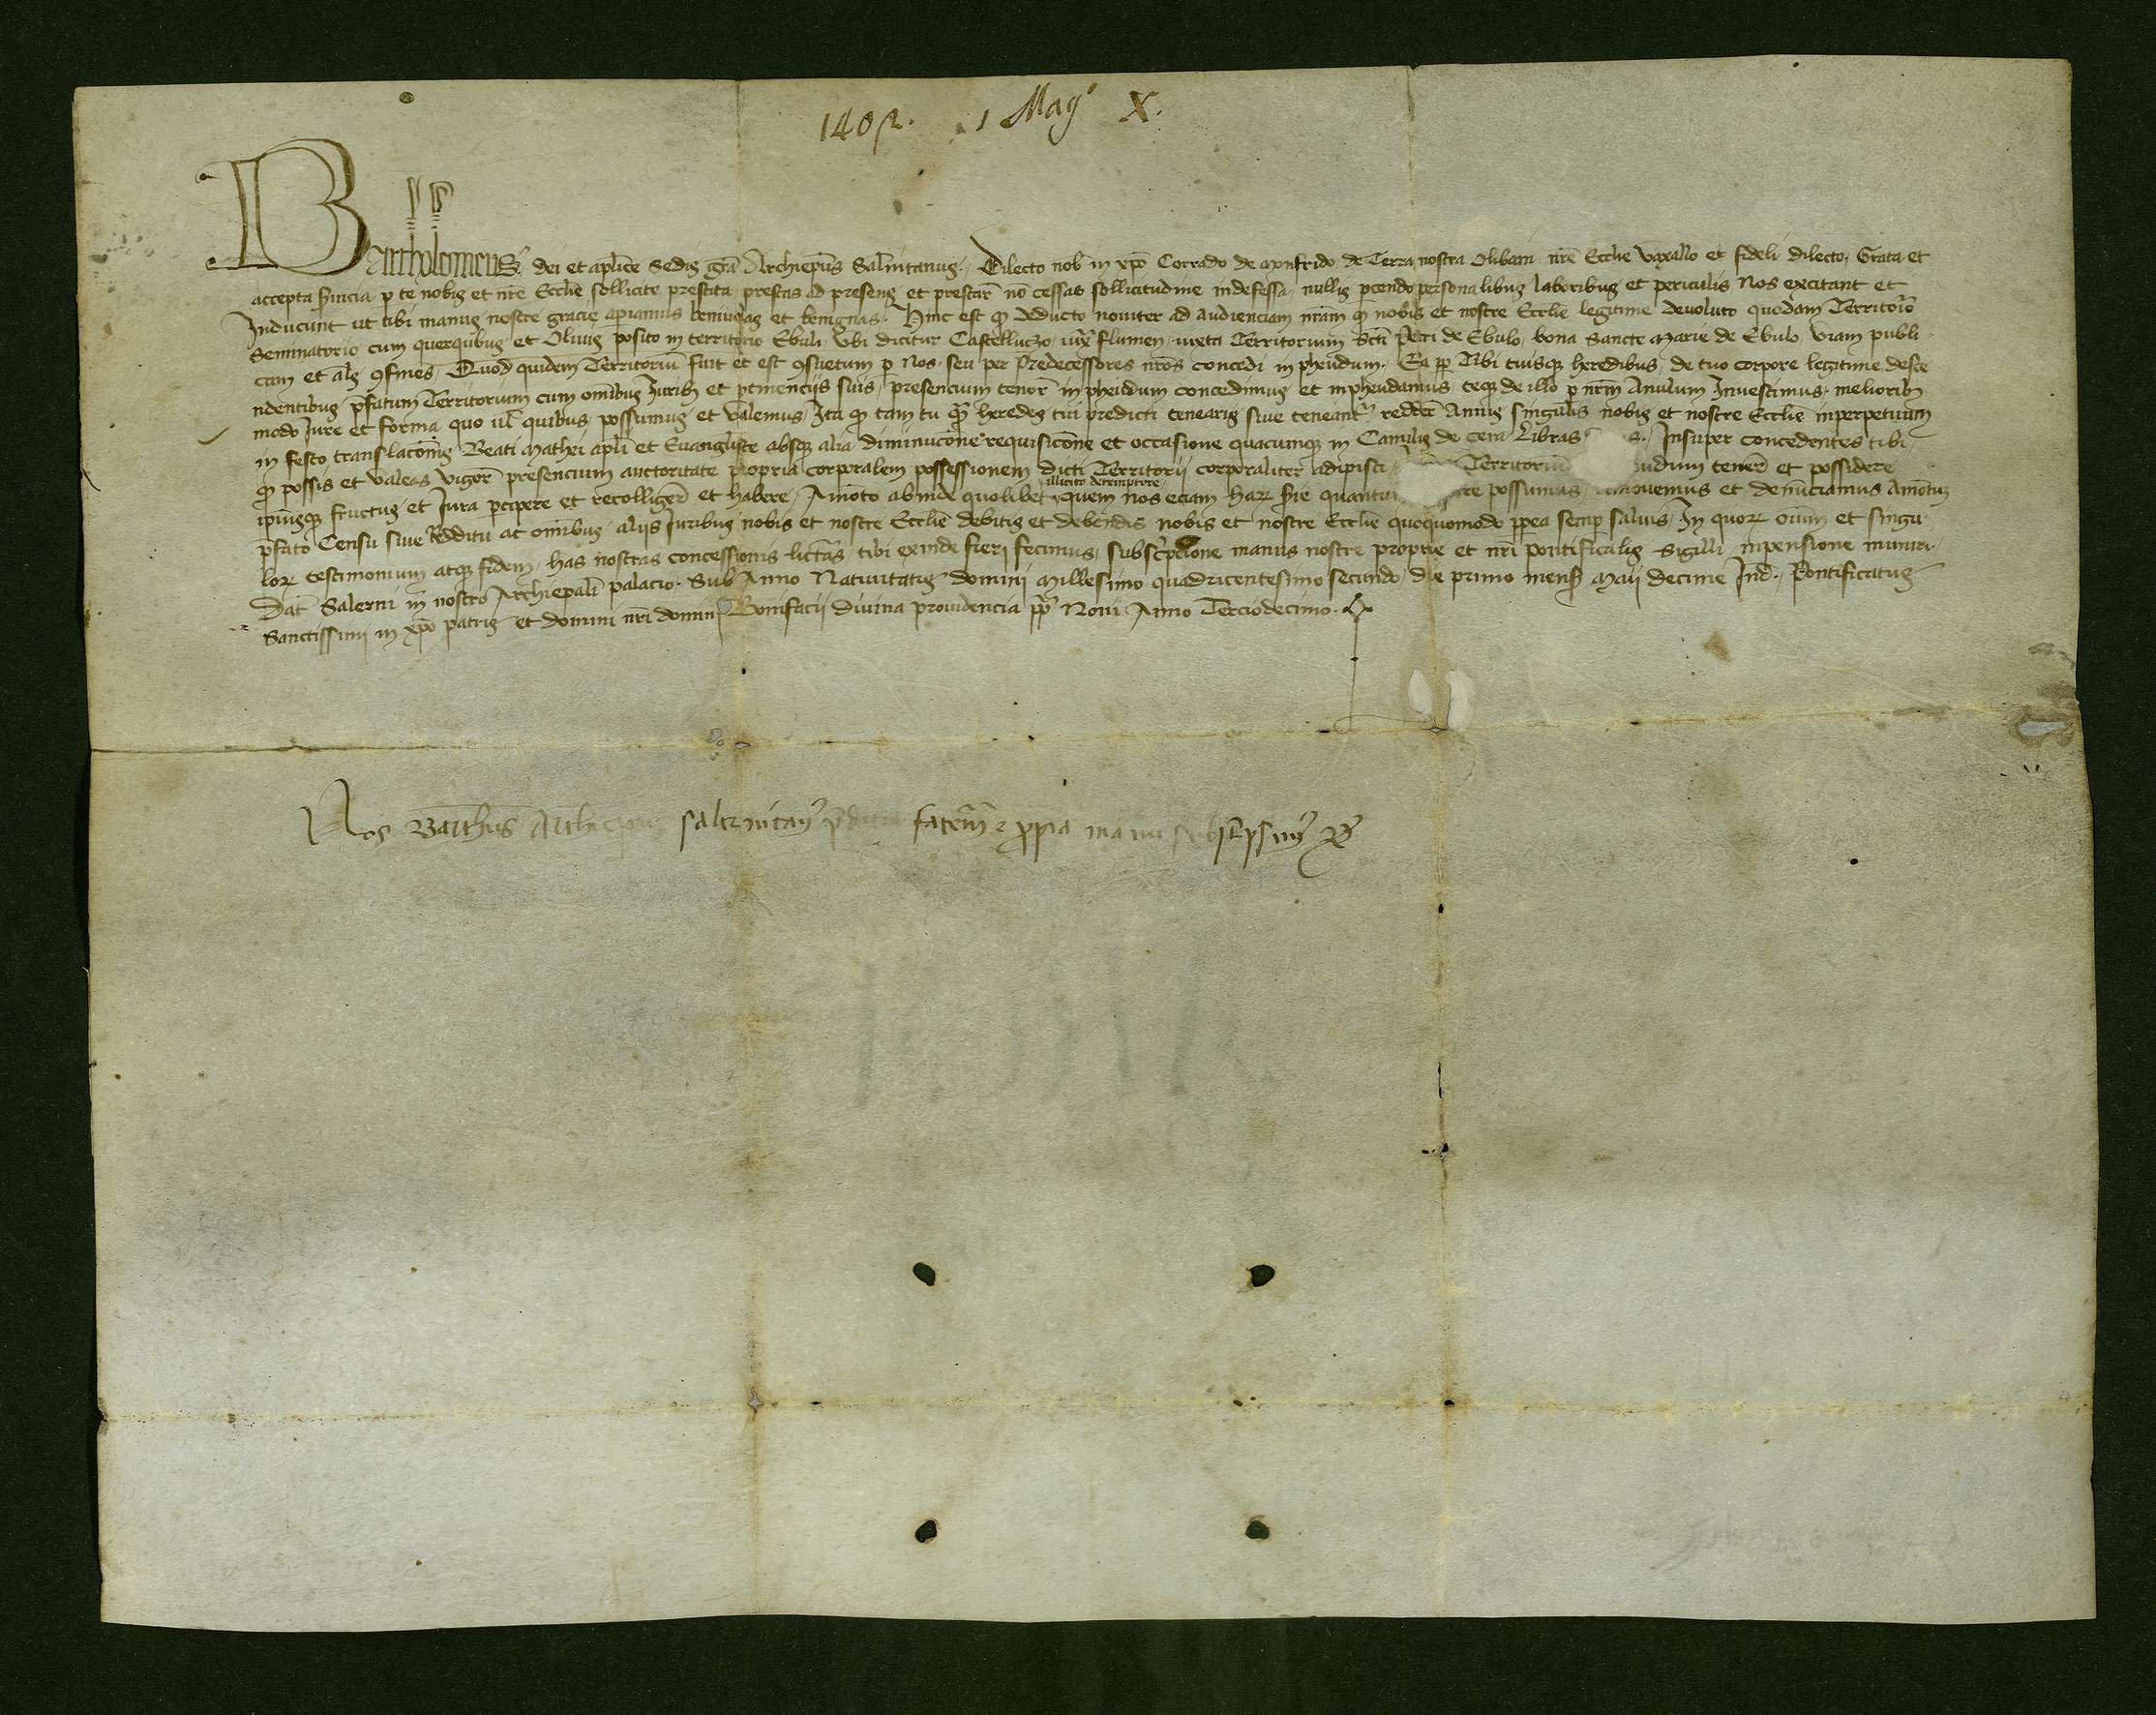 1402. 1 Maij X.
Bartholomeus dei et aplice Sedis gra Archiepus Salnitanus. Dilecto nob in xpo Corrado de Monfrido de Terra nostra Olibani nre Ecclie vaxallo et fideli dilecto, Grata et
accepta svicia p te nobis et nre Ecclie sollicite prestita prestas ad presens et prestare no cessas sollicitudine indefessa nullis pcendo personalibus laboribus et periculis Nos excitant et
Inducunt ut tibi manus nostre gracie apiamus benivolas et benignas. Hinc est q deducto noviter ad audienciam nram q nobis et nostre Ecclie legitime devoluto quodam Territorio
Seminatorio cum querqubus et Olivis posito in territorio Ebuli Ubi dicitur Castelluczo iuxta flumen iuxta Territorium Scti Petri de Ebulo, bona Sancte Marie de Ebulo viam publi
cam et als 9fines, Quod quidem Territoriu fuit et est 9suetum p Nos seu per Predecessores nros concedi in pheudum. Ea pp Tibi tuisq heredibus de tuo corpore legitime desce
ndentibus pfatum Territorium cum omibus Iuribus et ptinenciis suis, presencium tenore in pheudum concedimus et inpheudamus teq de illo p nrm Anulum Investimus. meliorib
modo Iure et forma quo ul quibus possumus et valemus, Ita q tam tu q heredes tui predicti tenearis sive teneantr reddere Annis singulis nobis et nostre Ecclie inperpetuum
in festo translacionis Beati Mathei apli et Evangliste absq alia diminucone requisicone et occasione quacumq in Camilis de cera Libras s. Insuper concedentes tibi,
q possis et valeas vigore presencium auctoritate propria corporalem possessionem dicti Territorii corporaliter adipisci, Territoriu udum tenere et possidere
ipiusq fructus et Iura pcipere et recolligere et habere, Amoto abinde quolibet illicito detemptore quem nos eciam har sie quantu re possumus, amovemus et denunciamus Amotu
pfato Censu sive Redditu ac omibus aliis Iuribus nobis et nostre Ecclie debitis et debendis nobis et nostre Ecclie quoquomodo ppea semp salvis, In quor oium et singu
lor testimonium atq fidem, has nostras concessionis licteras tibi exinde fieri fecimus, subscripcione manus nostre proprie et nri Pontificalis Sigilli inpensione muniri.
Dat Salerni in nostro Archiepali palacio. Sub Anno Nativitatis domini Millesimo quadricentesimo secundo, die primo mensis Maii decime Ind. Pontificatus
Sanctissimi in xpo patris et domini nri domini Bonifacii divina providencia pp Noni Anno Terciodecimo.
Nos Barthus Archiepus salernitans pdicta fatemr ppia manu subscpsims